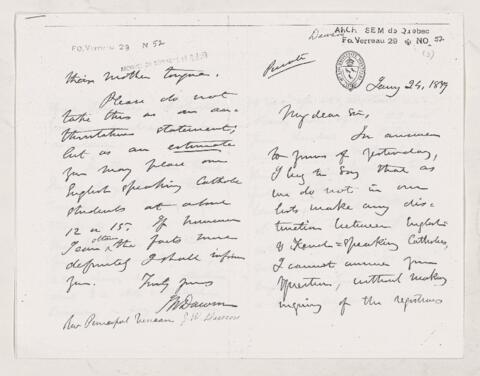 Private
Jany 24, 1879
My dear Sir,
In answer
to yours of yesterday,
I beg to say that as
we do not in our
lists make any dis-
tinction between English
& French-speaking Catholics,
I cannot answer your
question, without making
inquiry of the registrars
Dawson
Arch. SEM de Québec
Fo. Verreau 29 NO. 52
Fo. Verreau 29 N 52
their mother tongue.
Please do not
take this as an au-
thoritative statement,
but as an estimate
you may place our
English speaking Catholic
students at about
12 or 15. If however
I can obtain the facts more
definitely I shall inform
you. Truly yours
JWDawson
Rev Principal Verreau J. W. Dawson